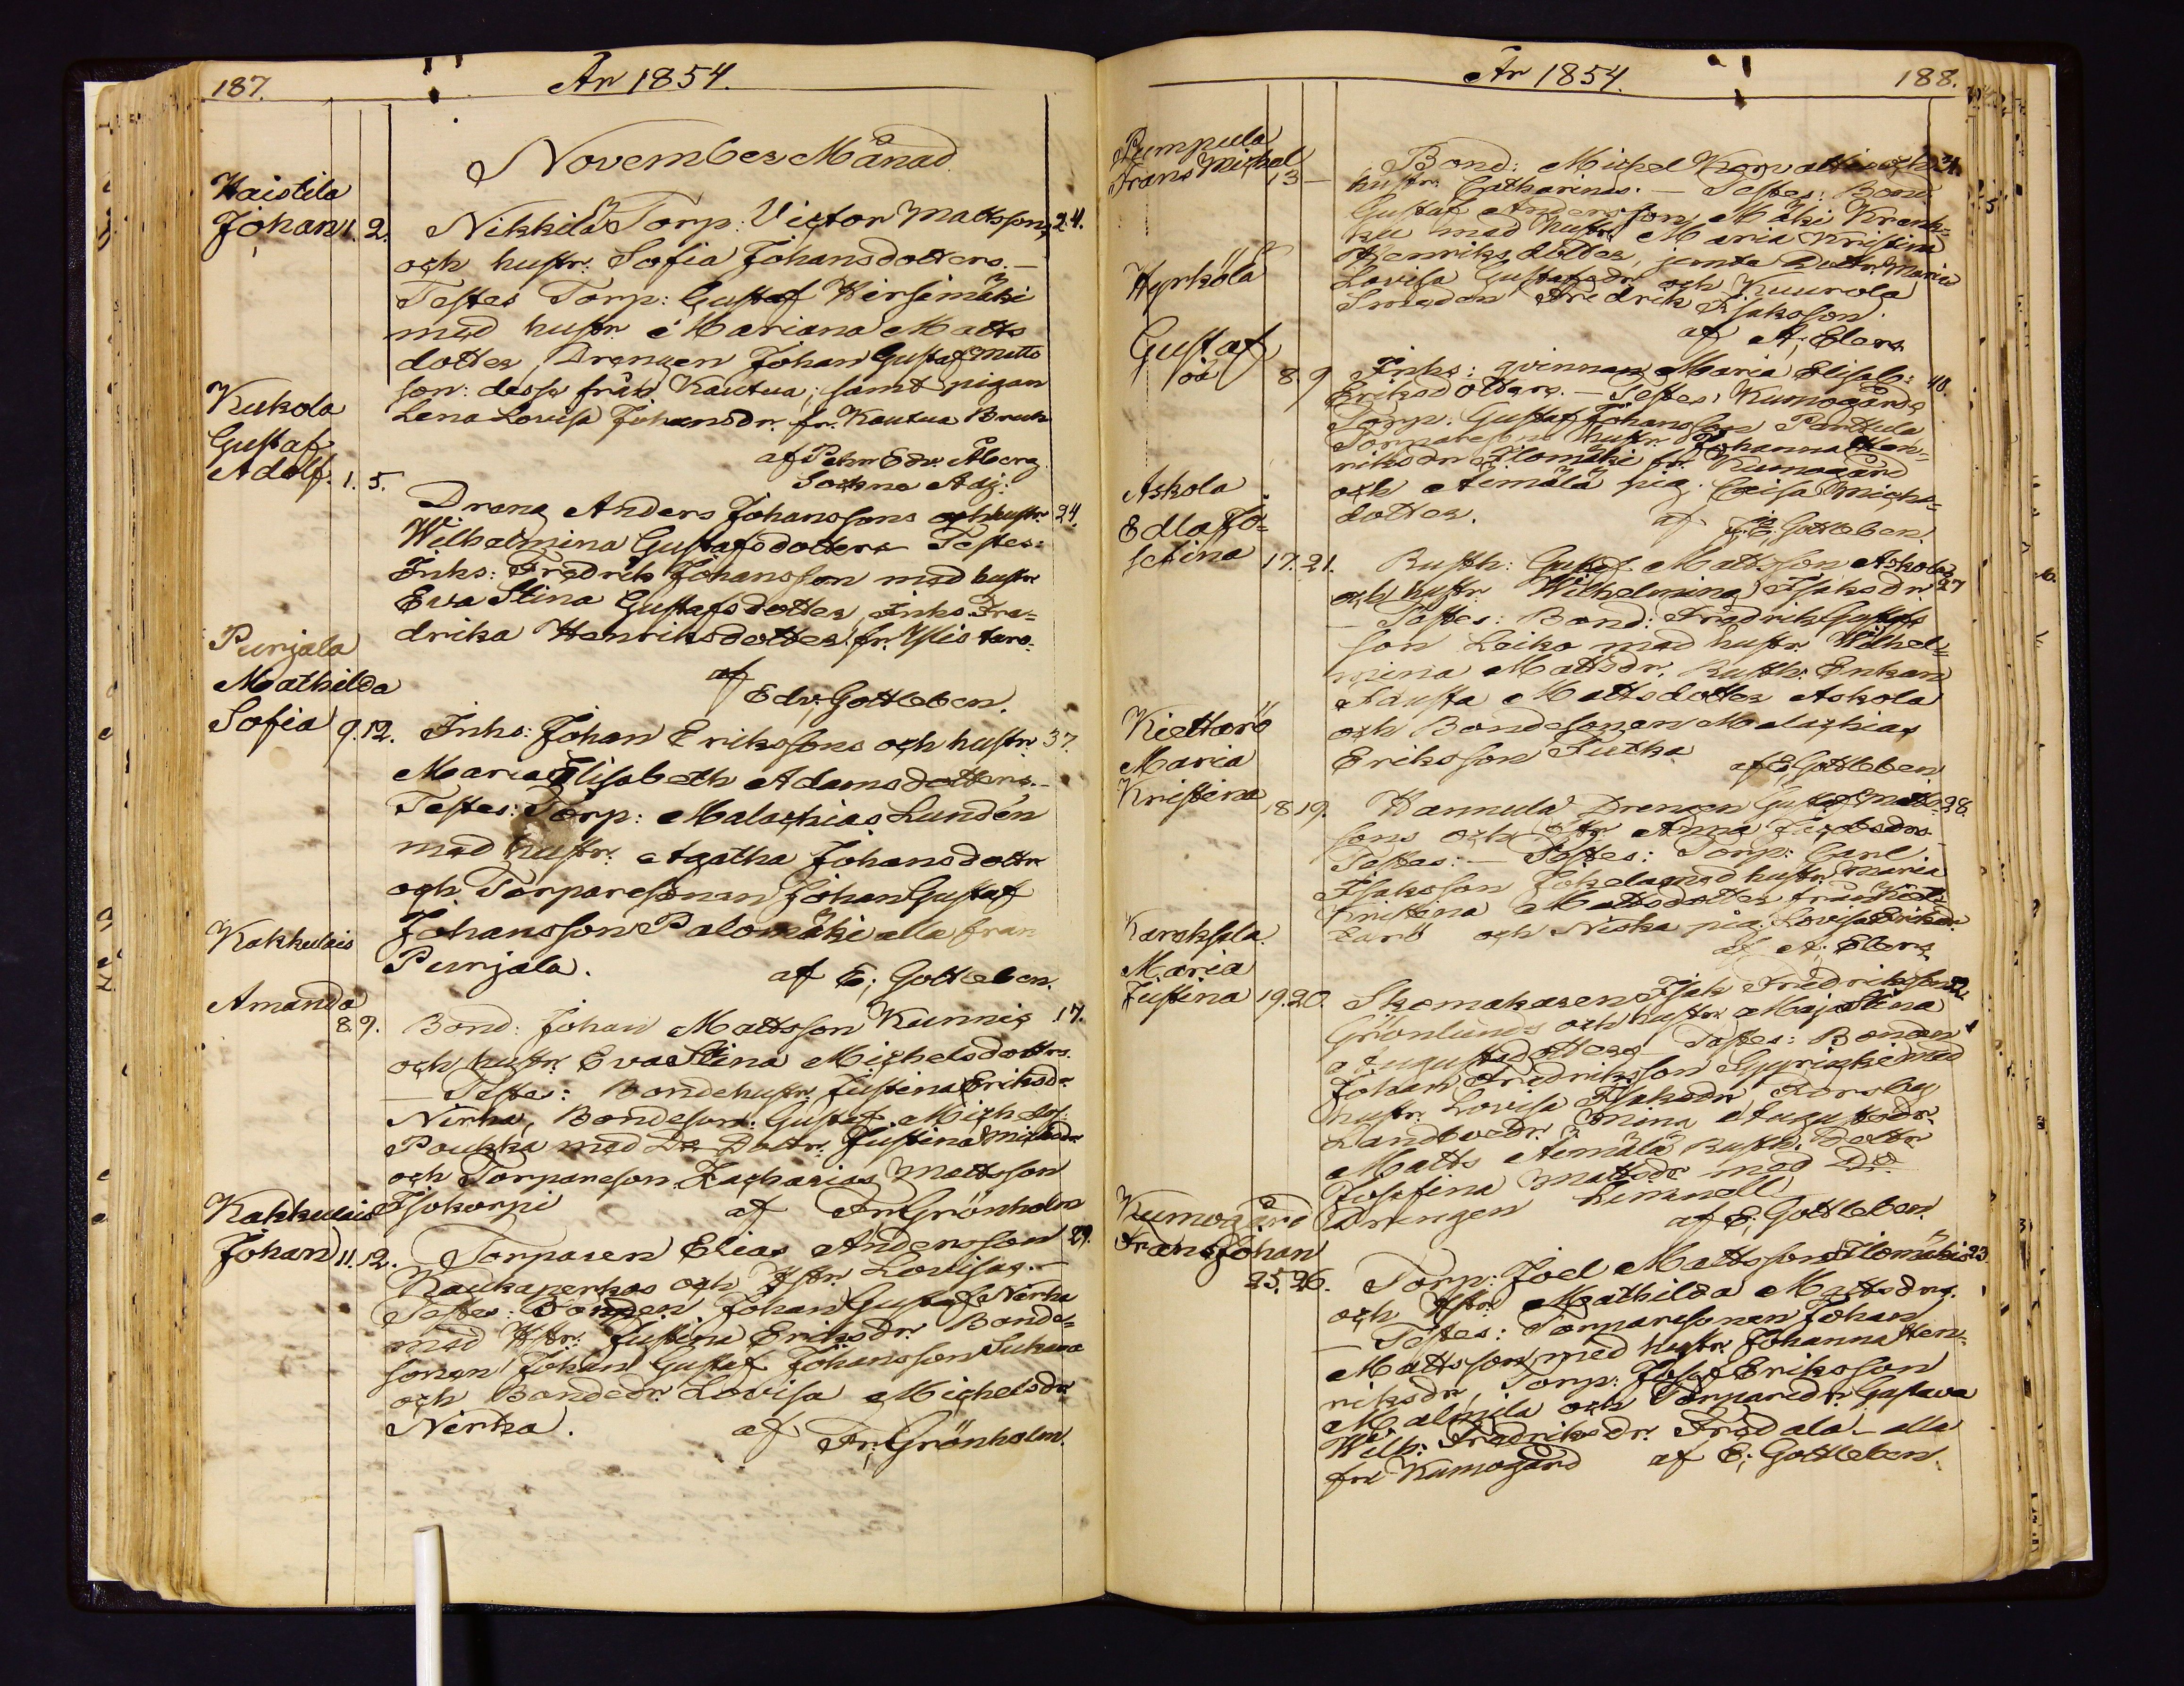 187.
År 1854.
November Månad.
Haistila
Johan 1. 2. Nikkilä Torp: Victor Mattsson 24.
och hustr: Sofia Johansdotters. —
Testes Torp: Gustaf Hirsimäki
med hustr. Mariana Matts
dotter, Drengen Johan Gustaf Matts
son: dessa från Kautua; samt pigan
Lena Lovisa Johansdr. fr. Kautua Bruk
af Pehr Edv. Åberg
Sockne Adj:
Kukola
Gustaf
Adolf. 1. 5.
Dreng Anders Johanssons och hustr. 24.
Wilhelmina Gustafsdotters Testes:
Inhs: Fredrik Johansson med hustr
Eva Stina Gustafsdotter, Inhs Fre=
drika Henriksdotter fr.
af
Edv: Gottleben.
Purjala
Mathilda
Sofia 9. 12. Inhs: Johan Erikssons och hustr 37.
Maria Elisabeth Adamsdotters. —
Testes: Torp: Malachias Lundén
med hustr: Agatha Johansdottr
och Torparesonen Johan Gustaf
Johansson Palomäki alla från
Purjala.
af E; Gottleben.
Kakkulais
Amanda
8. 9. Bond: Johan Mattsson Kunnig 17.
och hustr. Eva Stina Michelsdottrs.
— Testes: Bondehustr. Justina Eriksdr
Nirha, Bondeson: Gustaf Michels:
Poukka med Do Dottr: Justina Michelsdr
och Torpareson Zacharias Mattsson
Isokorpi
af Fr. Grönholm
Kakkulais
Johan 11. 12. Torparen Elias Andersson 29.
Raukaperkos och Hstr. Lovisas. —
Testes: Bonden Johan Gustaf Nirha
med Hstr: Justina Eriksdr. Bonde=
sonen Johan Gustaf Johansson
och Bondedr. Lovisa Michelsdr
Nirha.
af Fr; Grönholm.
År 1854.
188.
Pumpula
Frans Michel
13 — Bond: Michel och 34.
hustr: Catharinas. — Testes: Bond
Gustaf Andersson Mäki Krank=
ku med hustr. Maria Kristina
Henriksdotter, jemte Dottr. Maria
Lovisa Gustafsdr. och Kuurola
Smeden Fredrik Isaksson.
af A; Elers
Hyrkölä
Gustaf
oä 8. 9 Inhs: qvinnan Maria Elisab: 40.
Eriksdotters. — Testes: Kumogårds
Torp: Gustaf Johansson Panttula
Torparesons hustr. Johanna Hen=
riksdr Ilomäki fr. Kumogård
och Äimälä pig. Caisa Michs=
dotter.
af J. E; Gottleben.
Askola
Edla Jo=
sefina 17. 21. Rusth: Gustaf Mattsson Askola
och hustr Wilhelmina Isaksdr. 27
— Testes: Bond: Fredrik Gustafs
son Leiko med hustr. Wilhel=
mina Mattsdr. Rusth: Enkan
Fausta Mattsdotter Askola
och Bondesonen Malachias
Eriksson
af E; Gottleben
Kiettarö
Maria
Kristina 18 19. Hannula Drengen Gustaf Matts= 28.
sons och Hstr. Anna Jacobsdrs.
Testes: — Testes: Torp: Carl
Isaksson Jokela med hustr Maria
Kristina Mattsdotter från Kiett
tarö och Niska pig: Lovisa Eriksdr.
af A; Elers
Karaksela.
Maria
Justina 19. 20. Skomakaren Isak Fredriksson
Grönlunds och hustr. Maja Stina
Augustsdotters Testes: Bonden
Johan Fredriksson med
hustr. Lovisa Isaksdr. Korsby
Landbodr. Mina Augustsdr.
Matts Äimälä Rusth. Dottr
Josefina Mattsdr med Do
Drengen
af E; Gottleben.
Kumogård
Frans Johan
25. 26. Torp: Joel Mattssons Ilomäkis 23
och Hstr. Mathilda Mattsdrs.
— Testes: Torparesonen Johan
Mattsson med hustr. Johanna Hen=
riksdr, Torp: Josef Eriksson
och Torparedr. Gustava
Wilh: Fredriksdr. alla
fr Kumogård
af E; Gottleben.